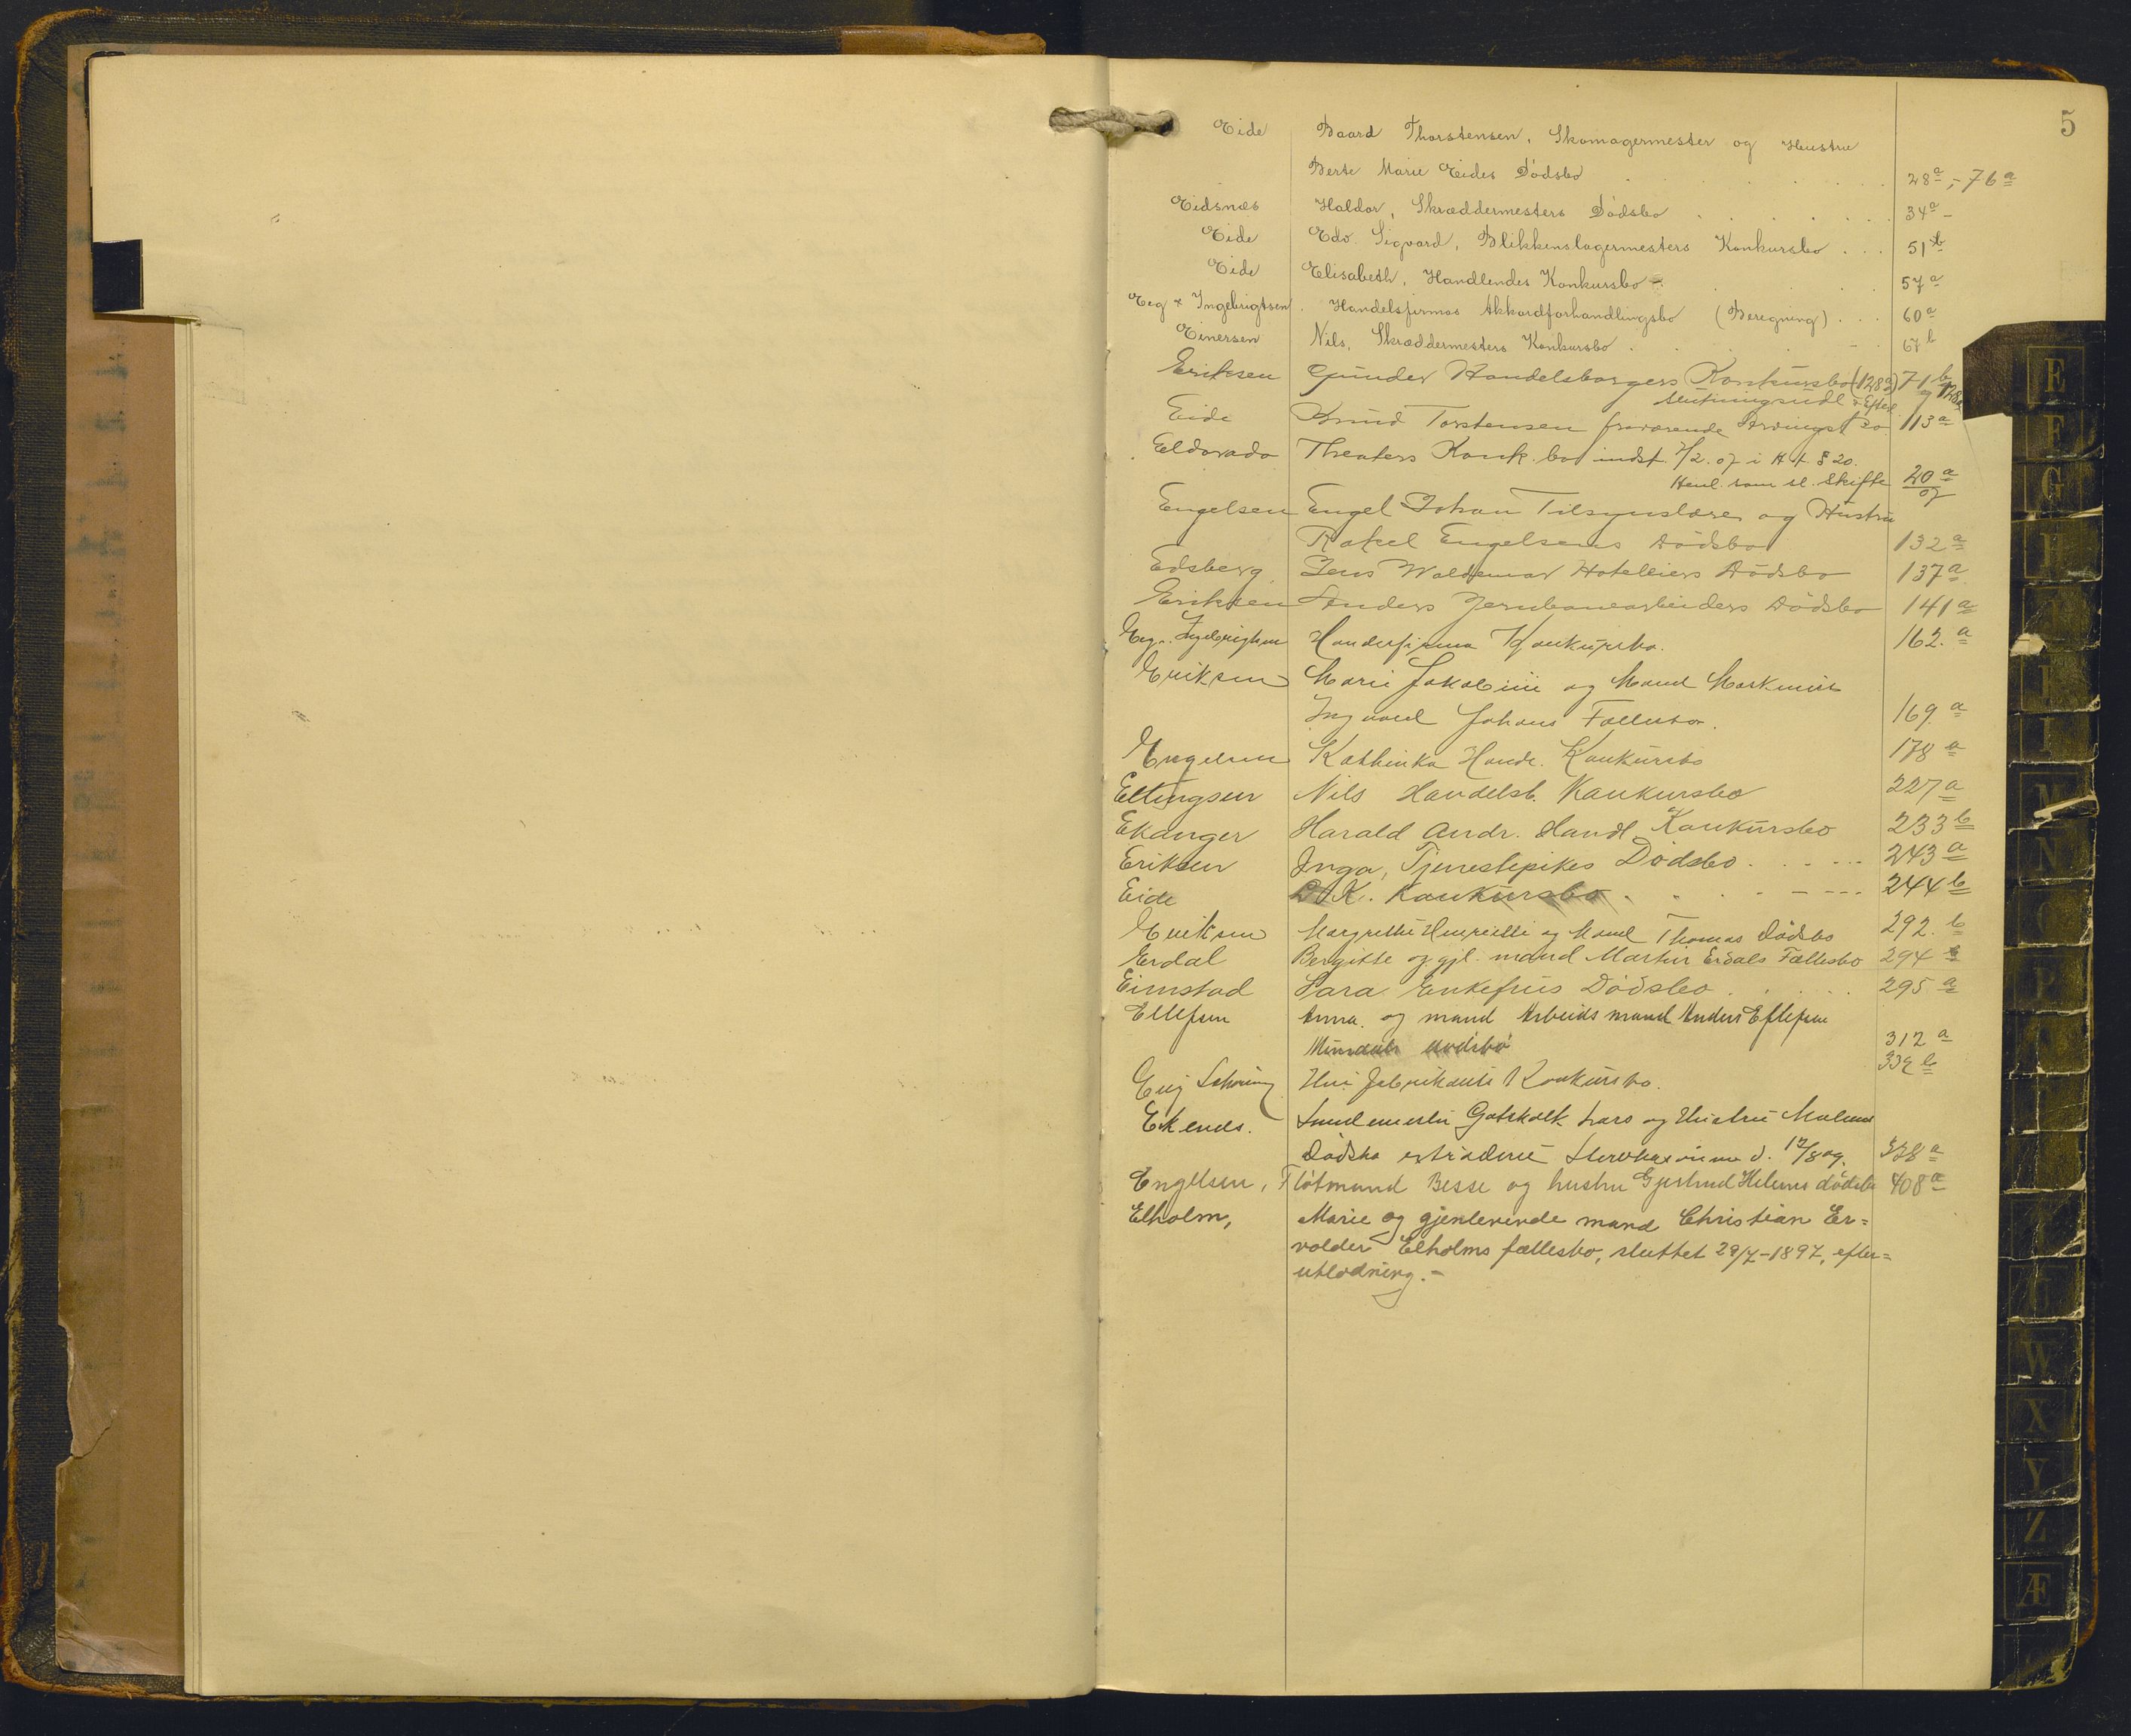 5
Eide Baard Thorstensen, Skomagermester og Hustru
Berte Marie Eides Dødsbo 28a, - 76a
Eidsnæs Haldor, Skræddermesters Dødsbo 34a -
Eide Edv. Sigvard, Blikkenslagermesters Konkursbo 51b
Eide Elisabeth, Handlendes Konkursbo 57a
Eeg & Ingebrigtsen Handelsfirmas Akkordforhandlingsbo (Beregning) 60a
Einersen Nils, Skræddermesters Konkursbo 67b
Eriksen Gunder Handelsborgers Konkursbo (128a) 71b
Slutningsudl. & Efterl. og 128a
Eide Knud Torstensen fraværende Arvingsbo 113a
Eldorado Theaters Konk.bo indst. 7/2. 07 i H.t. § 20.
Henl. som sl. Skifte 20a/07
Engelsen Engel Johan Tilsynslærer og Hustru
Rakel Engelsens Dødsbo 132a
Edsberg, Jens Waldemar Hotelliers Dødsbo 137a
Eriksen Anders Jernbanearbeiders Dødsbo 141a
Eeg & Ingebrigtsen Handelsfirma Konkursbo. 162.a
Eriksen Marie Jakobine og Mand Maskinist
Ingvard Johans Fællesbo. 169.a
Engelsen Kathinka Handl. Konkursbo 178a
Ellingsen Nils Handelsb. Konkursbo 227a
Ekanger Harald Andr. Handl. Konkursbo 233b
Eriksen Inga, Tjenestepikes Dødsbo 243a
Eide O. K. Konkursbo 244b
Eriksen Margrethe Henriette og Mand Thomas Dødsbo 292.b
Erdal Bergitte og gjl. mand Martin Erdals Fællesbo 294
Eimstad Sara Enkefrus Dødsbo 295.a
Ellefsen Anna og mand Arbeidsmand Anders Ellefsen
dødsbo 312a
339b
Fabrikants Konkursbo.
Ekends. Gotskalk Lars og Hustru
Dødsbo 17/8 09. 378a
Engelsen, Fløtmand Besse og hustru Gjertrud Helenes dødsbo 408a
Elholm, Marie og gjenlevende mand Christian Er=
volder Elholms fællesbo, sluttet 29/7-1897, efter=
utlodning.-
E
F
G
H
I
M
N
O
P
U
W
X
Y
Z
Æ